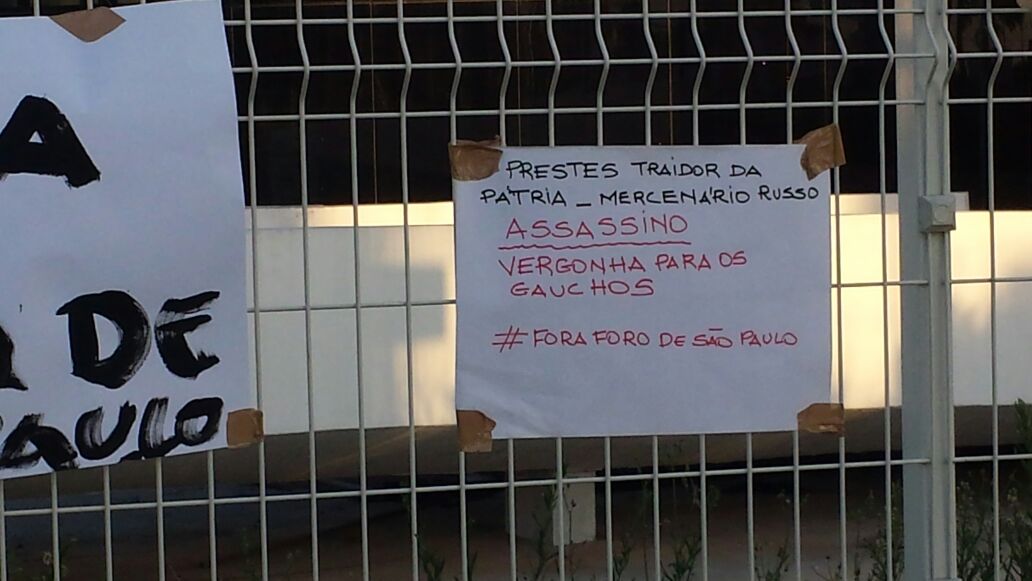 A
DE
PAULO
PRESTES TRAIDOR DA
PÁTRIA - MERCENÁRIO RUSSO
ASSASSINO
VERGONHA PARA OS
GAUCHOS
# FORA FORO DE SÃO PAULO